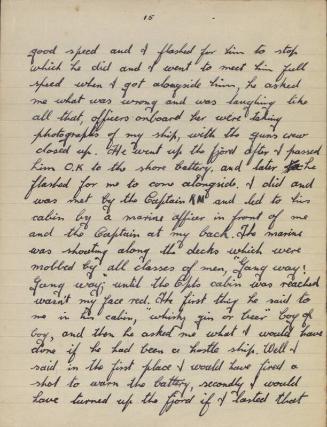 15
good speed and I flashed for him to stop
which he did and I went to meet him full
speed when I got alongside him, he asked
me what was wrong and was laughing like
all that, officers onboard her were taking
photographs of my ship, with the guns crew
closed up. He went up the fjord after I passed
him O.K to the shore battery, and later he
flashed for me to come alongside, I did and
was met by the Captain RN and led to his
cabin by a marine officer in front of me
and the Captain at my back. The marine
was shouting along the decks which were
mobbed by all classes of men, "Gang way!
Gang way; until the Cpts cabin was reached
wasn't my face red. The first thing he said to
me in his cabin, "whisky gin or beer" boy oh
boy, and then he asked me what I would have
done if he had been a hostile ship. Well I
said in the first place I would have fired a
shot to warn the battery, secondly I would
have turned up the fjord if I lasted that